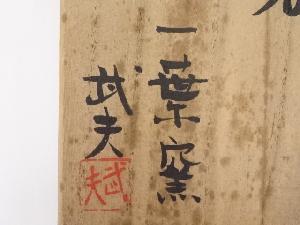 一葉窯
武夫